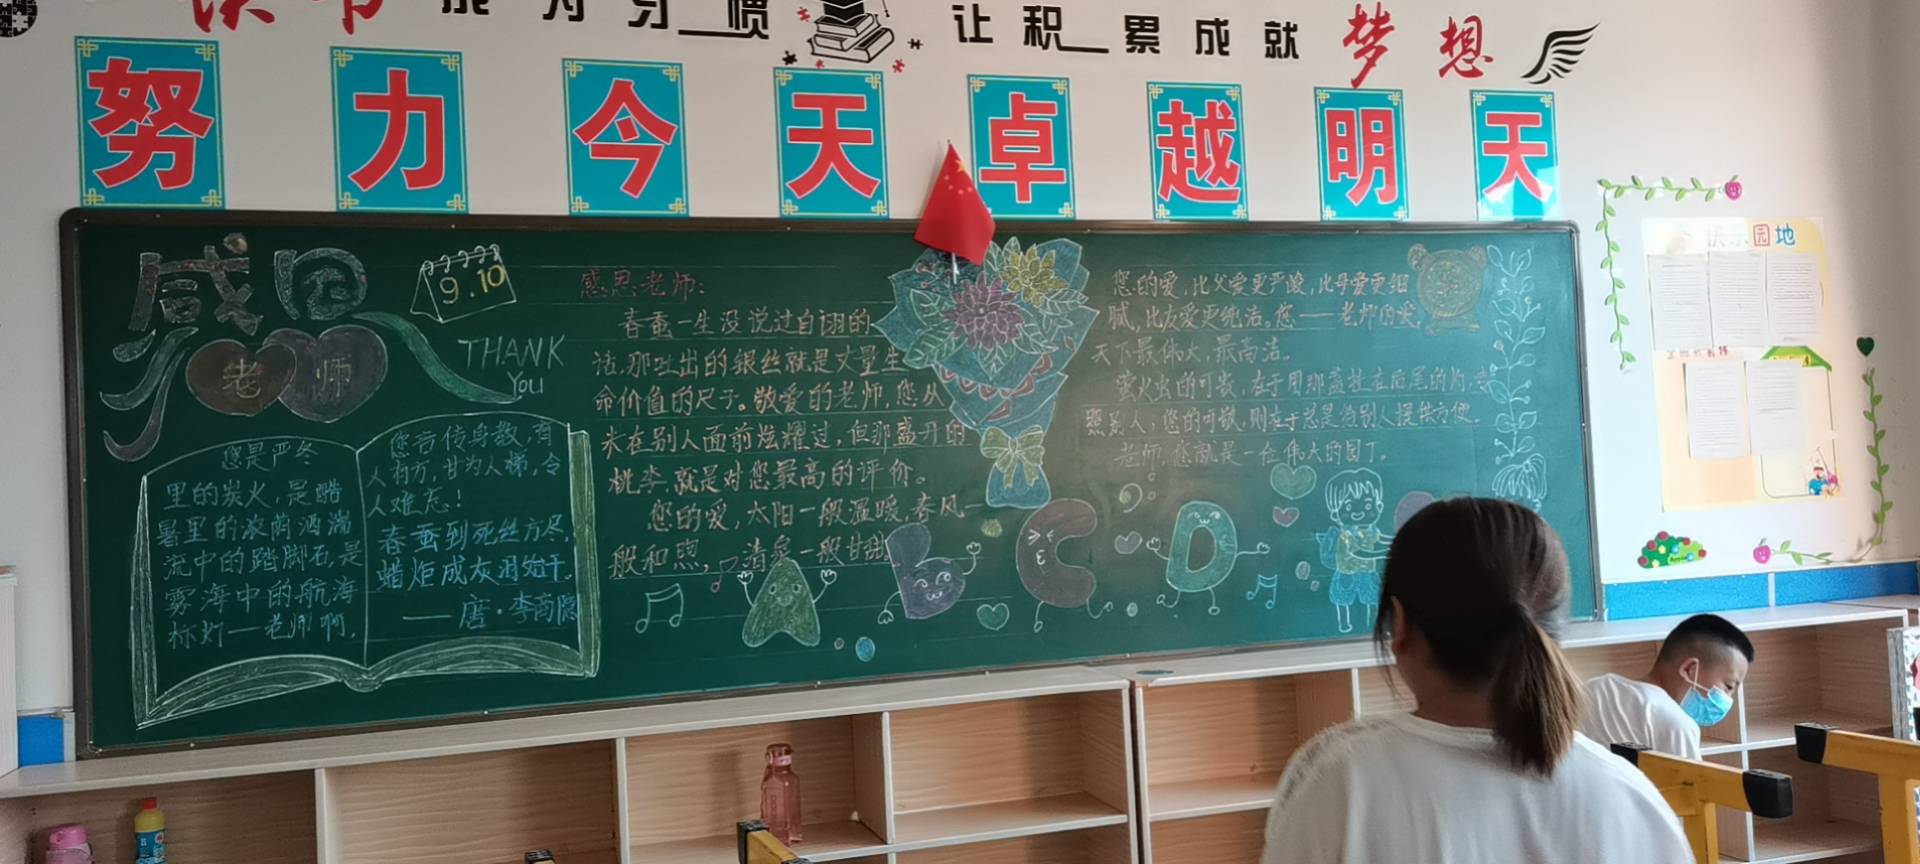 成为习惯
让积累成就梦想
努力今天卓越明天
感恩
老师
9.10
THANK
You
您是严冬
里的炭火，是酷
暑里的浓荫洒湍
流中的踏脚石，是
雾海中的航海
标灯一老师啊，
您言传身教，育
人有方，甘为人梯，令
人难忘！
春蚕到死丝方尽，
蜡炬成灰泪始干。
——唐·李商隐
感恩老师：
春蚕一生没说过自诩的
话，那吐出的银丝就是丈量生
命价值的尺子。敬爱的老师，您从
未在别人面前炫耀过，但那盛开的
桃李，就是对您最高的评价。
您的爱，太阳一般温暖，春风一
般和煦，清泉一般甘甜
您的爱，比父爱更严峻，比母爱更细
腻，比友爱更纯洁。您——老师的爱，
天下最伟大，最高洁。
萤火虫的可贵，在于用那盏挂在后尾的灯，专
照别人；您的可敬，则在于总是给别人提供方便。
老师，您就是一位伟大的园丁。
A
b
C
D
园地